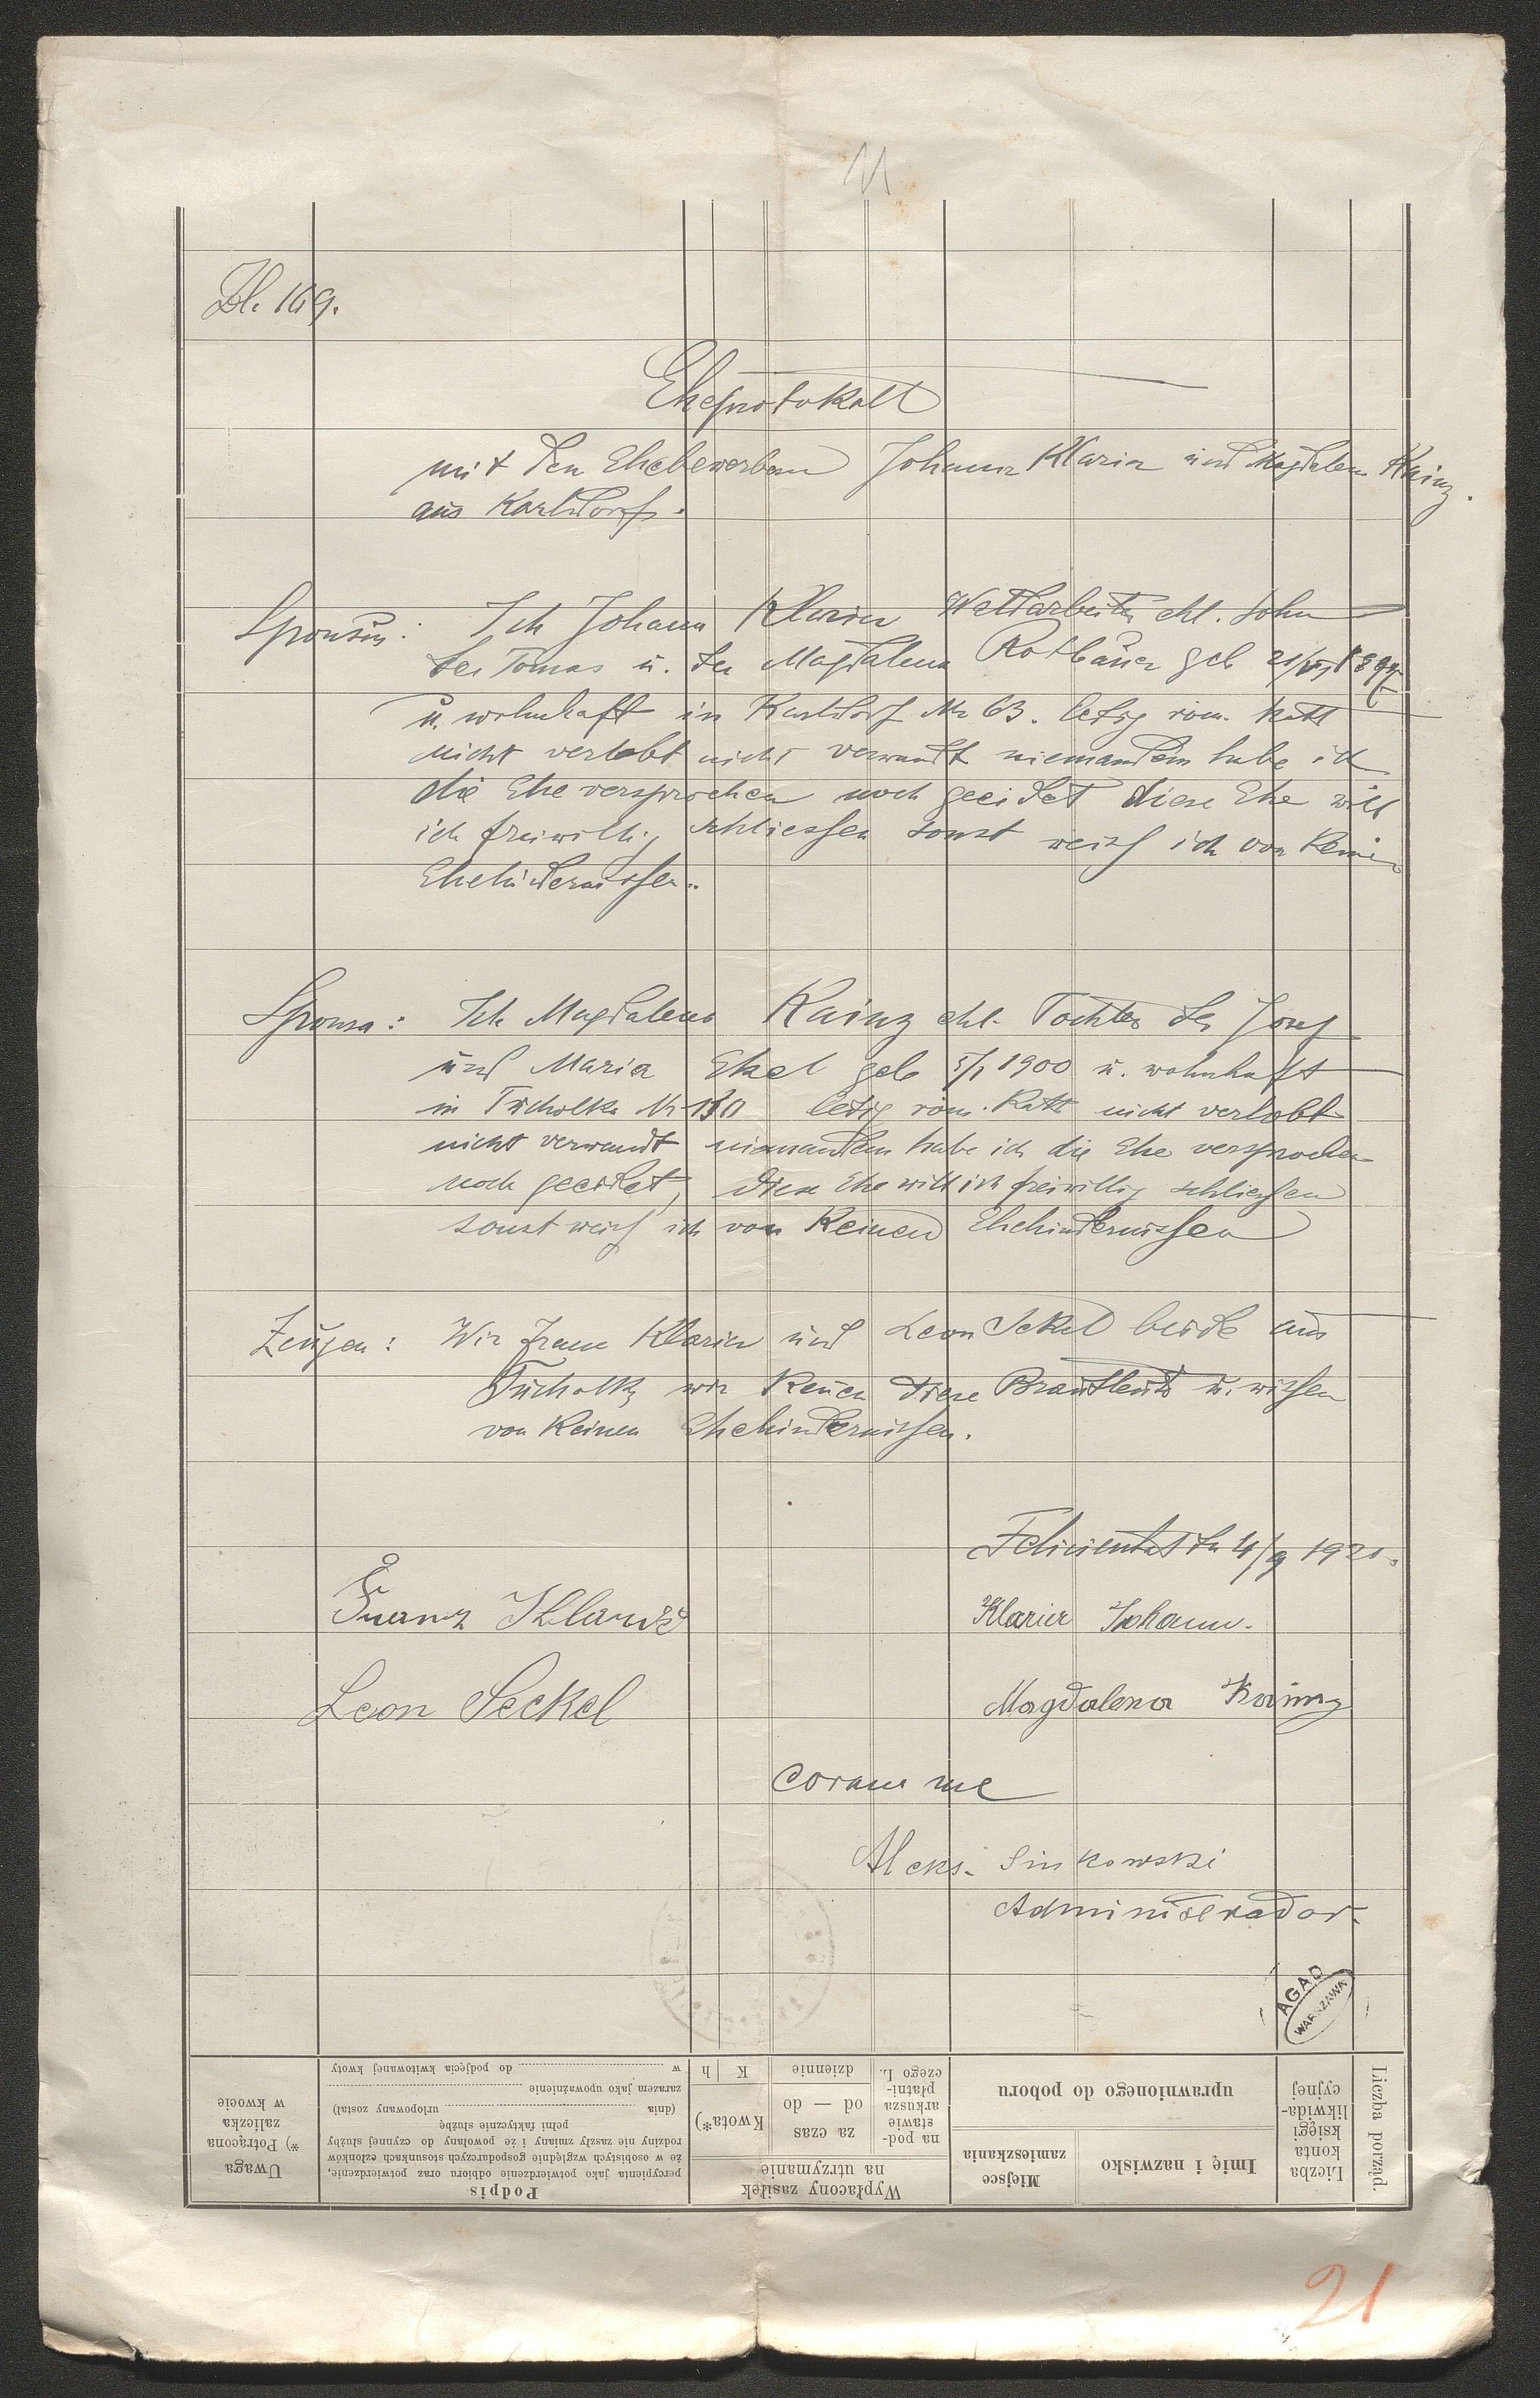 11
Zl. 169.
Eheprotokoll
mit den Ehebewerbern Johann Klarin und Magdalena Kainz.
aus Karlsdorf.
Sponsus: Ich Johann Klarier Waldarbeiter ehl. Sohn
des Tomas u. der Magdalena Rotbauer geb 21/VI 1897
u. wohnhaft in Karlsdorf No 63. ledig röm. Kath
nicht verlobt nicht verwandt niemandem habe ich
die Ehe versprochen noch geeidet diese Ehe will
ich freiwillig schliessen sonst weisß ich von Keinen
Ehehindernissen.
Sponsa: Ich Magdalena Kainz ehl. Tochter des Josef
und Maria Ekel geb 5/1 1900 u. wohnhaft
in Tucholka Nr 130 ledig röm. Kath nicht verlobt
nicht verwandt niemandem habe ich die Ehe versprochen
noch geeidet, diese Ehe will ich freiwillig schliessen
sonst weisß ich von Keinen Ehehindernissen
Zeugen: Wir Franz Klarier und Leon Sekel beide aus
Tucholka wir Kenen diese Brautleute u. wissen
von Keinen Ehehindernissen.
Felicienthal den 4/9 1921.
Franz Klarie
Klarier Johann.
Leon Seckel
Magdalena Kainz
coram me
Aleks. Sinkowski
Administrador.
AGAD
WARSZAWA
Liczba porząd.
Liczba konta księgi likwida-cyjnej
Imię i nazwisko
Miejsce zamieszkania
uprawnionego do poboru
Wypłacony zasiłek na utrzymanie
na pod-stawie arkusza płatni-czego L.
za czas od — do
dziennie
Kwota*)
K h
Podpis
percypienta jako potwierdzenie odbioru oraz potwierdzenie,
że w osobistych względnie gospodarczych stosunkach członków
rodziny nie zaszły zmiany i że powołany do czynnej służby
pełni faktycznie służbę
(dnia urlopowany został)
zarazem jako upoważnienie
w do podjęcia kwitowanej kwoty
Uwaga
*) Potrącona zaliczka w kwocie
21